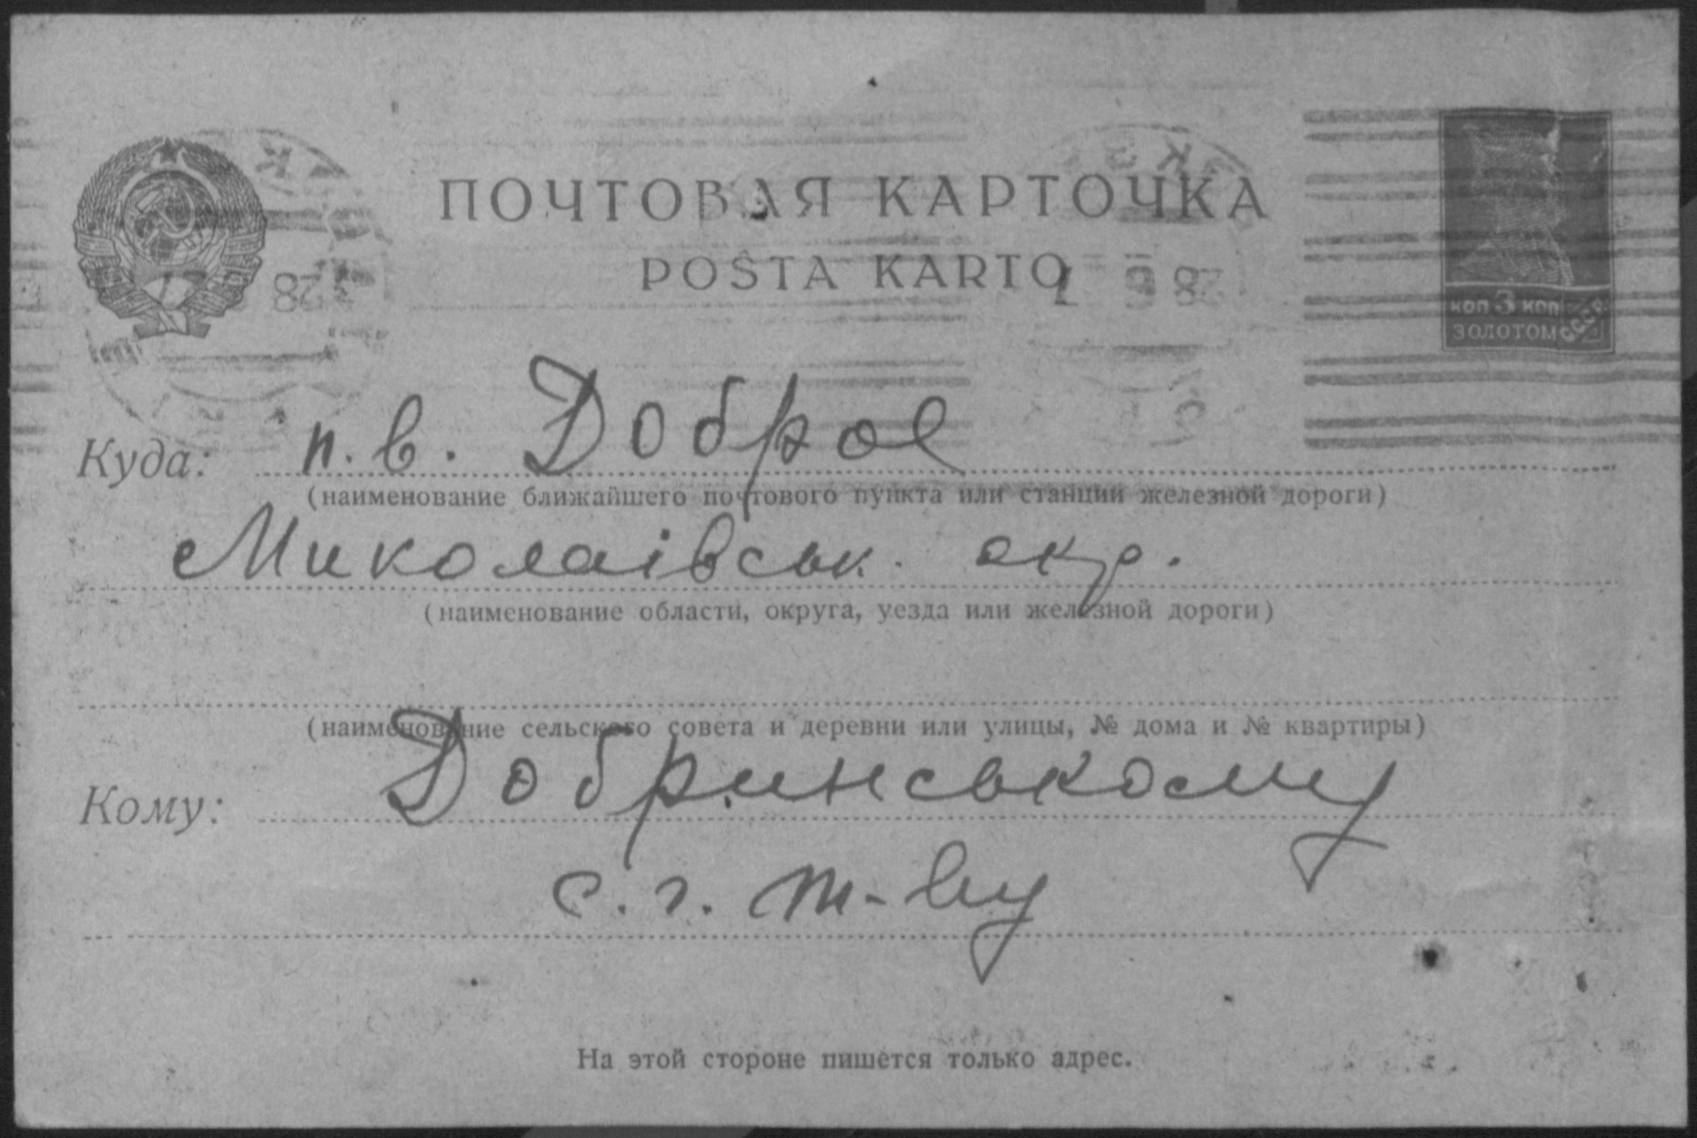 ПОЧТОВАЯ КАРТОЧКА
POŜTA KARTO
28
28
коп 3 коп
ЗОЛОТОМ
СССР
Куда: п. в. Доброе
(наименование ближайшего почтового пункта или станции железной дороги)
Миколаівськ. окр.
(наименование области, округа, уезда или железной дороги)
(наименование сельского совета и деревни или улицы, № дома и № квартиры)
Кому: Добринському
с. г. т-ву
На этой стороне пишется только адрес.